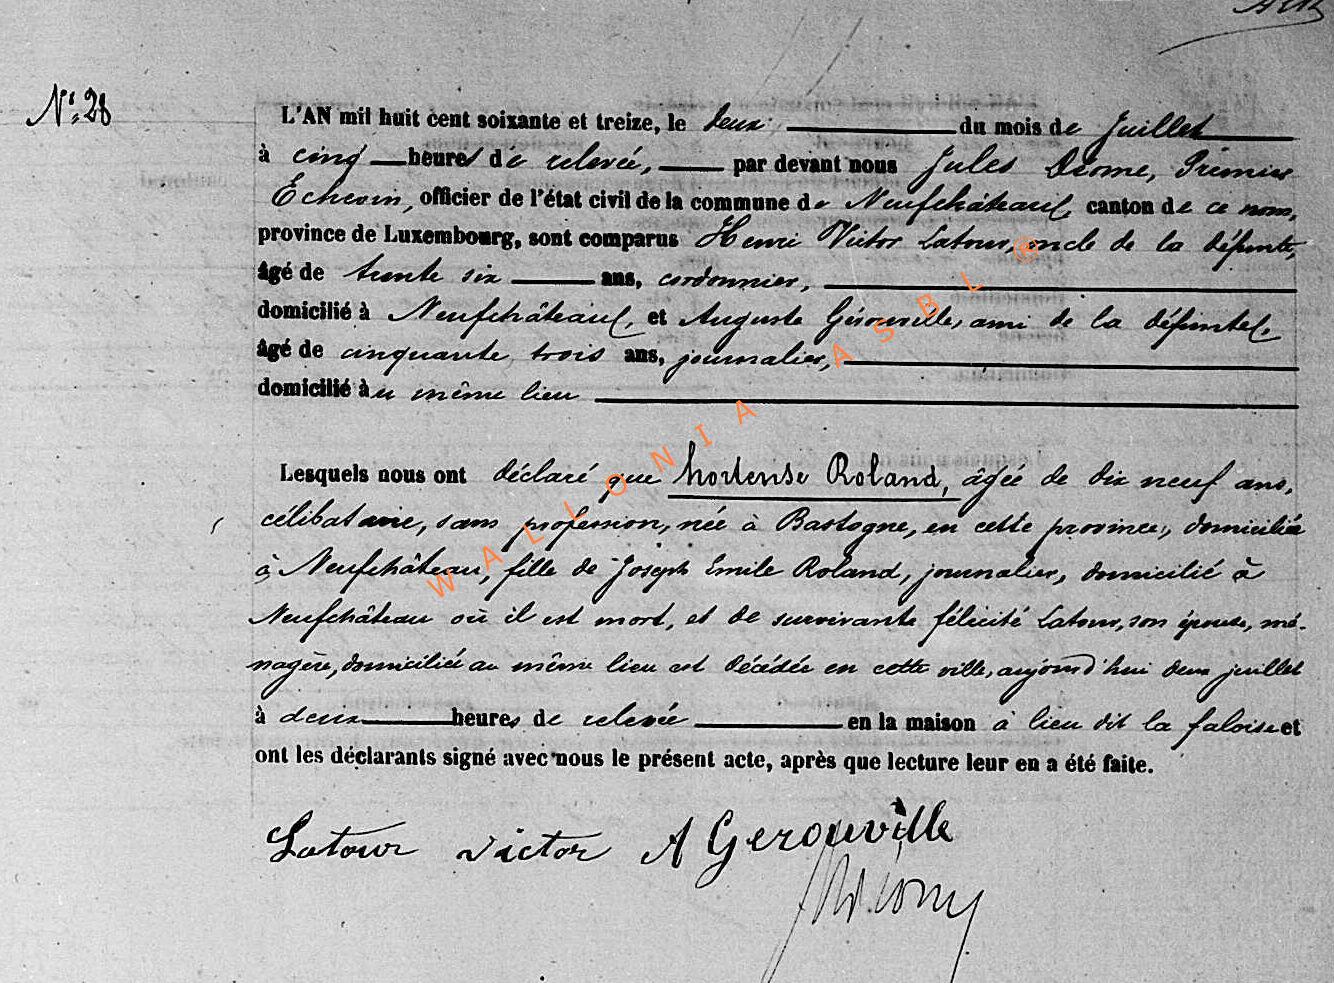 N°. 28
L'AN mil huit cent soixante et treize, le deux du mois de Juillet
à cinq heures de relevée, par devant nous Jules Diome, Premier
Echevin, officier de l'état civil de la commune de Neufchâteau, canton de ce nom,
province de Luxembourg, sont comparus Henri Victor Latour, oncle de la défunte,
âgé de trente six ans, cordonnier,
domicilié à Neufchâteau, et Auguste Gérouville, ami de la défunte,
âgé de cinquante trois ans, journalier,
domicilié àu même lieu
Lesquels nous ont déclaré que hortense Roland, âgée de dix neuf ans,
célibataire, sans profession, née à Bastogne, en cette province, domiciliée
à Neufchâteau, fille de Joseph Emile Roland, journalier, domicilié à
Neufchâteau où il est mort, et de survivante félicité Latour, son épouse, mé-
nagère, domiciliée au même lieu est décédée en cette ville, aujourd'hui deux juillet
à deux heures de relevée en la maison à lieu dit la faloise et
ont les déclarants signé avec nous le présent acte, après que lecture leur en a été faite.
Latour victor A Gerouville
WALLONIA ASBL ®